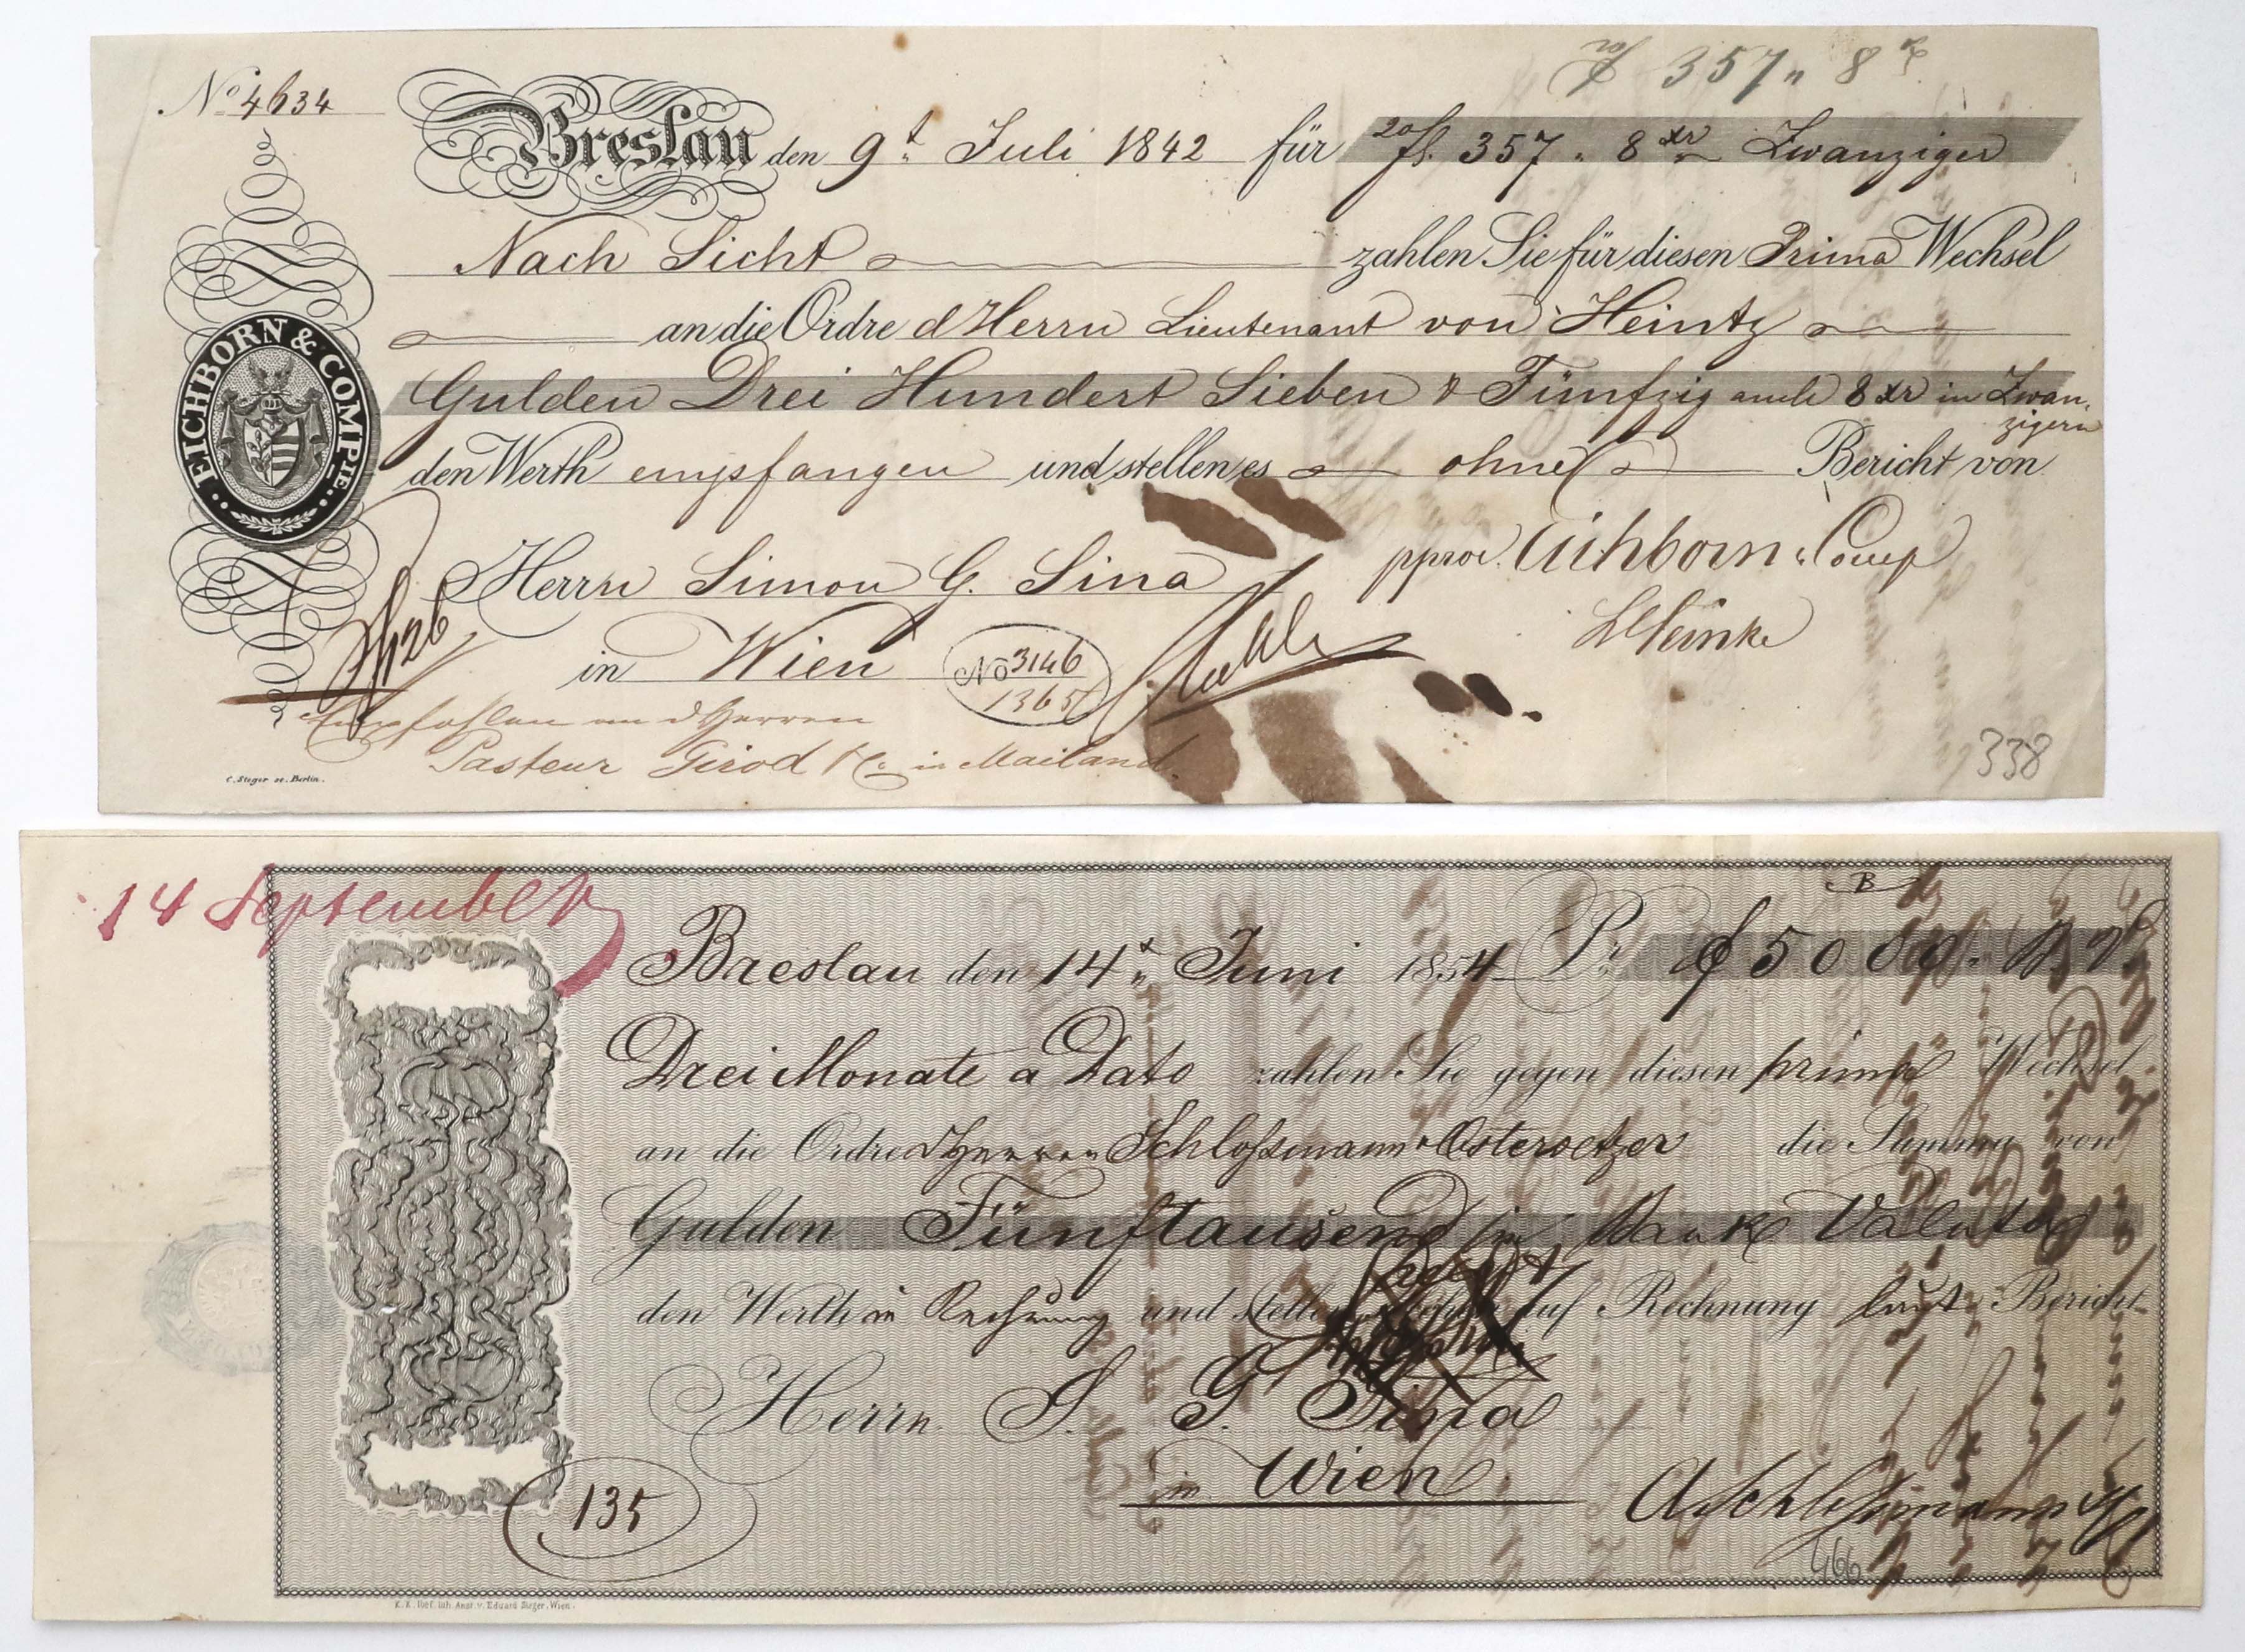 357 " 8
No 4634
Breslau den 9t Juli 1842 für 20/fl. 357 " 8 xr Zwanziger
Nach Sicht zahlen Sie für diesen Prima Wechsel
an die Ordre d Herrn Lieutenant von Heintz
Gulden Drei Hundert Sieben & Fünfzig auch 8 xr in Zwan-
zigern
den Werth empfangen und stellen es ohne Bericht von
EICHBORN & COMPIE.
Herrn Simon G. Sina
pproc. Eichborn & Comp
in Wien
No 3146
1365
Empfohlen an d Herren
Pasteur Girod & Co in Mailand.
338
C. Steger sc. Berlin.
14 September
B
Breslau den 14t Juni 1854 Pr f 5000.
Drei Monate a Dato zahlen Sie gegen diesen prima Wechsel
an die Ordre d Herren Schloßmann & Ostersetzer die Summe von
Gulden Fünftausend in Bank Valuta
den Werth in Rechnung und stellen auf Rechnung laut Bericht
Herrn S. G. Sina
in Wien
135
466
K.K. Hof. lith. Anst. v. Eduard Sieger. Wien.